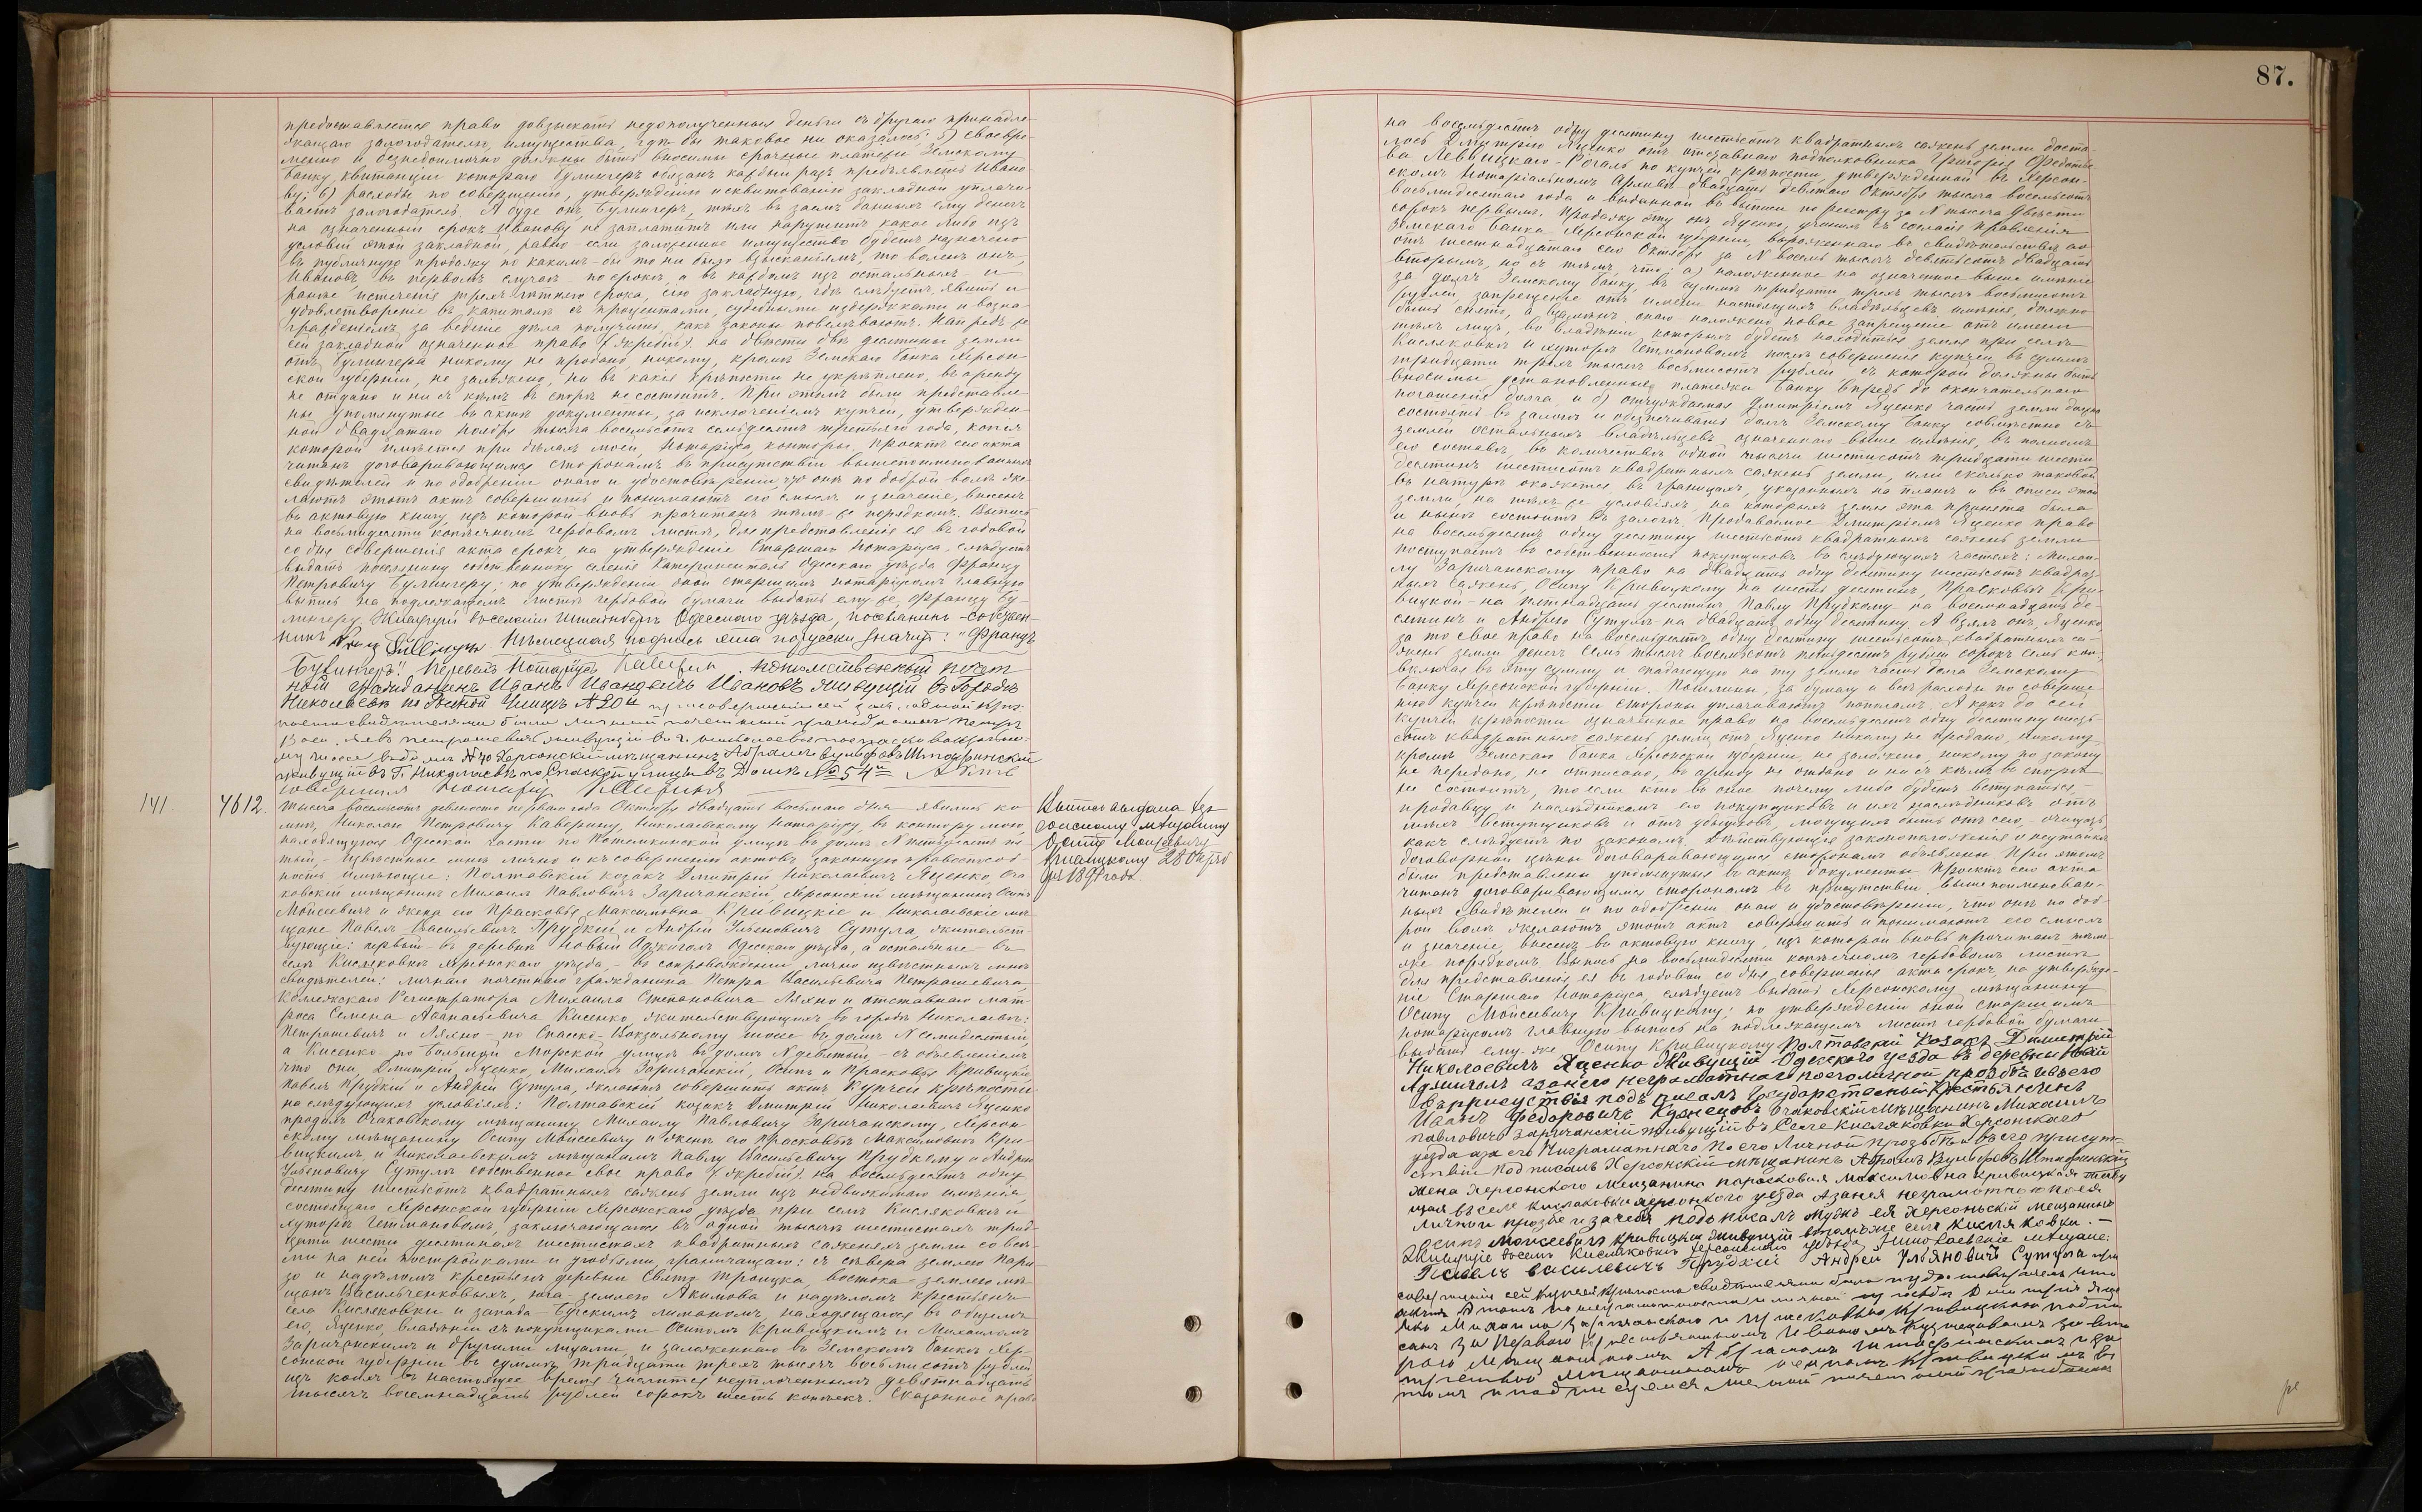 87.
предоставляется право довзыскать недополученныя деньги съ другаго принадле-
жащаго залогодателю имущества, гдѣ бы таковое ни оказалось; 5) своевре-
менно и бездоимочно должны быть вносимы срочные платежи Земскому
банку, квитанціи котораго Булингеръ обязанъ каждый разъ предъявлять Ивано-
ву; 6) расходы по совершенію, утвержденію и квитованію закладной уплачи-
ваетъ залогодатель. А буде онъ, Булингеръ, тѣхъ въ заемъ данныхъ ему денегъ
на означенный срокъ Иванову не заплатитъ или нарушитъ какое либо изъ
условій этой закладной, равно если заложенное имущество будетъ назначено
въ публичную продажу по какимъ-бы то ни было взысканіямъ, то воленъ онъ,
Ивановъ, въ первомъ случаѣ по срокѣ, а въ каждомъ изъ остальныхъ и
ранѣе истеченія трехлѣтняго срока, сію закладную, гдѣ слѣдуетъ, явить и
удовлетвореніе въ капиталѣ съ процентами, судебными издержками и возна-
гражденіемъ за веденіе дѣла получить, какъ законы повелѣваютъ. Напредь се
сей закладной означенное право (жребій) на двѣсти двѣ десятины земли
отъ Булингера никому не продано, никому, кромѣ Земскаго банка Херсон-
ской губерніи, не заложено, ни въ какія крѣпости не укрѣплено, въ аренду
не отдано и ни съ кѣмъ въ спорѣ не состоитъ. При этомъ были представле-
ны упомянутые въ актѣ документы, за исключеніемъ купчей, утвержден-
ной двадцатаго Ноября тысяча восемьсотъ семьдесятъ третьяго года, копія
которой имѣется при дѣлахъ моей, Нотаріуса, конторы. Проектъ сего акта
читанъ договаривающимся сторонамъ въ присутствіи вышепоименованныхъ
свидѣтелей и по одобреніи онаго и удостовѣреніи, что онѣ по доброй волѣ же-
лаютъ этотъ актъ совершить и понимаютъ его смыслъ и значеніе, внесенъ
въ актовую книгу, изъ которой вновь прочитанъ тѣмъ-же порядкомъ. Выпись
на восьмидесяти копѣечномъ гербовомъ листѣ, для представленія ея въ годовой
со дня совершенія акта срокъ, на утвержденіе Старшаго Нотаріуса, слѣдуетъ
выдать поселянину собственнику селенія Катериненталь Одесскаго уѣзда Францу
Петровичу Булингеру; по утвержденіи оной старшимъ нотаріусомъ главную
выпись на подлежащемъ листѣ гербовой бумаги выдать ему-же, Францу Бу-
лингеру. Живущій въ селеніи Штейнбергъ Одесскаго уѣзда, поселянинъ-собствен-
никъ Нѣмецкая подпись сія по русски значитъ: "Францъ
Булингеръ". Перевелъ Нотаріусъ Каверинъ. Потомственный почет-
ный гражданинъ Иванъ Ивановичъ Ивановъ живущій въ Городѣ
Николаевѣ по Улицѣ №20й
живущій въ Г. Николаевѣ по Спаской улицѣ въ Домѣ №54й Актъ
совершилъ Нотаріусъ Каверинъ
141
4612.
Тысяча восемьсотъ девяносто перваго года Октября двадцать восьмаго дня явились ко
мнѣ, Николаю Петровичу Каверину, Николаевскому Нотаріусу, въ контору мою,
находящуюся Одесской части по Потемкинской улицѣ въ домѣ N пятьдесятъ пя-
тый, извѣстные мнѣ лично и къ совершенію актовъ законную правоспособ-
ность имѣющіе: Полтавскій козакъ Дмитрій Николаевичъ Яценко, Оча-
ковскій мѣщанинъ Михаилъ Павловичъ Заричанскій, Херсонскій мѣщанинъ Осипъ
Мойсеевичъ и жена его Прасковья Максимовна Кривицкіе и Николаевскіе мѣ-
щане Павелъ Васильевичъ Прудкій и Андрей Ульяновичъ Сутула, жительст-
вующіе: первый - въ деревнѣ Новый Аджиголъ Одесскаго уѣзда, а остальные - въ
селѣ Кисляковкѣ Херсонскаго уѣзда, - въ сопровожденіи лично извѣстныхъ мнѣ
свидѣтелей: личнаго почетнаго гражданина Петра Васильевича Петрашевича,
Коллежскаго Регистратора Михаила Степановича Ляхно и отставнаго мат-
роса Семена Аѳанасьевича Кисенко, жительствующихъ въ городѣ Николаевѣ:
Петрашевичъ и Ляхно - по Спаско-Вокзальному шоссе въ домѣ N семидесятый,
а Кисенко - по Большой Морской улицѣ въ домѣ N девятый, - съ объявленіемъ
что они, Дмитрій Яценко, Михаилъ Заричанскій, Осипъ и Прасковья Кривицкіе,
Павелъ Прудкій и Андрей Сутула, желаютъ совершить актъ купчей крѣпости
на слѣдующихъ условіяхъ: Полтавскій козакъ Дмитрій Николаевичъ Яценко
продалъ Очаковскому мѣщанину Михаилу Павловичу Заричанскому, Херсон-
скому мѣщанину Осипу Мойсеевичу и женѣ его Прасковьѣ Максимовнѣ Кри-
вицкимъ, и Николаевскимъ мѣщанамъ Павлу Васильевичу Прудкому и Андрею
Ульяновичу Сутулѣ собственное свое право (жребій) на восемьдесятъ одну
десятину шестьсотъ квадратныхъ саженъ земли изъ недвижимаго имѣнія,
состоящаго Херсонской губерніи Херсонскаго уѣзда при селѣ Кисляковкѣ и
хуторѣ Гетмановомъ, заключающагося въ одной тысячѣ шестистахъ трид-
цати шести десятинахъ шестистахъ квадратныхъ саженяхъ земли со всѣ-
ми на ней постройками и угодьями, граничащаго: съ сѣвера землею Пари-
зо и надѣломъ крестьянъ деревни Свято-Троицка, востока землею мѣ-
щанъ Васильченковыхъ, юга - землею Акимова и надѣломъ крестьянъ
села Кисляковки и запада - Бугскимъ лиманомъ, находящагося въ общемъ
его, Яценко, владѣніи съ покупщиками Осипомъ Кривицкимъ и Михаиломъ
Заричанскимъ и другими лицами, и заложеннаго въ Земскомъ банкѣ Хер-
сонской губерніи въ суммѣ тридцати трехъ тысячъ восьмисотъ рублей
изъ коихъ въ настоящее время числится неуплоченнымъ девятнадцать
тысячъ восемнадцать рублей сорокъ шесть копѣекъ. Сказанное право
Выпись выдана Хер-
сонскому мѣщанину
Осипу Мойсеевичу
Кривицкому 28 Октяб-
ря 1891 года.
на восемьдесятъ одну десятину шестьсотъ квадратныхъ саженъ земли доста-
лось Дмитрію Яценко отъ отставнаго подполковника Григорія Федотье-
ва Леввицкаго-Рогаль по купчей крѣпости, утвержденной въ Херсон-
скомъ Нотаріальномъ Архивѣ двадцать девятаго Октября тысяча восемьсотъ
восьмидесятаго года и выданной въ выписи по реестру за N тысяча двѣсти
сорокъ первымъ. Продажу эту онъ, Яценко, учинилъ съ согласія правленія
Земскаго банка Херсонской губерніи, выраженнаго въ свидѣтельствѣ его
отъ шестнадцатаго сего Октября за N восемь тысячъ девятьсотъ двадцать
вторымъ, но съ тѣмъ, что: а) наложенное на означенное выше имѣніе
за долгъ Земскому банку, въ суммѣ тридцати трехъ тысячъ восьмисотъ
рублей, запрещеніе отъ имени настоящихъ владѣльцевъ имѣнія, должно
быть снято, а взамѣнъ онаго наложено новое запрещеніе отъ имени
тѣхъ лицъ, во владѣніи которыхъ будетъ находиться земля при селѣ
Кисляковкѣ и хуторѣ Гетмановомъ послѣ совершенія купчей, въ суммѣ
тридцати трехъ тысячъ восьмисотъ рублей, съ которой должны быть
вносимы установленные платежи банку впредь до окончательнаго
погашенія долга, и б) отчуждаемая Дмитріемъ Яценко часть земли должна
состоять въ залогѣ и обезпечивать долгъ Земскому банку совмѣстно съ
землей остальныхъ владѣльцевъ означеннаго выше имѣнія, въ полномъ
его составѣ, въ количествѣ одной тысячи шестисотъ тридцати шести
десятинъ шестисотъ квадратныхъ саженъ земли, или сколько таковой
въ натурѣ окажется, въ границахъ, указанныхъ на планѣ и въ описи этой
земли, на тѣхъ-же условіяхъ, на которыхъ земля эта принята была
и нынѣ состоитъ въ залогѣ. Продаваемое Дмитріемъ Яценко право
на восемьдесятъ одну десятину шестьсотъ квадратныхъ саженъ земли
поступаетъ въ собственность покупщиковъ въ слѣдующихъ частяхъ: Михаи-
лу Заричанскому право на двадцать одну десятину шестьсотъ квадрат-
ныхъ саженъ, Осипу Кривицкому на шесть десятинъ, Прасковьѣ Кри-
вицкой - на пятнадцать десятинъ, Павлу Прудкому - на восемнадцать де-
сятинъ и Андрею Сутулѣ - на двадцать одну десятину. А взялъ онъ, Яценко,
за то свое право на восемьдесятъ одну десятину шестьсотъ квадратныхъ са-
женъ земли денегъ семь тысячъ восемьсотъ пятьдесятъ рублей сорокъ семь коп.,
включая въ эту сумму и падающую на ту землю часть долга Земскому
банку Херсонской губерніи. Пошлины, за бумагу и всѣ расходы по соверше-
нію купчей крѣпости стороны уплачиваютъ пополамъ. А какъ до сей
купчей крѣпости означенное право на восемьдесятъ одну десятину шесть-
сотъ квадратныхъ саженъ земли отъ Яценко никому не продано, никому,
кромѣ Земскаго банка Херсонской губерніи, не заложено, никому по закону
не передано, не отписано, въ аренду не отдано и ни съ кѣмъ въ спорѣ
не состоитъ, то если кто въ оное почему либо будетъ вступаться, -
продавцу и наслѣдникамъ его покупщиковъ и ихъ наслѣдниковъ отъ
тѣхъ вступщиковъ и отъ убытковъ, могущихъ быть отъ сего, - очищать,
какъ слѣдуетъ по законамъ. Дѣйствующія законоположенія о неутайкѣ
договорной цѣны договаривающимся сторонамъ объявлены. При этомъ
были представлены упомянутые въ актѣ документы. Проектъ сего акта
читанъ договаривающимся сторонамъ въ присутствіи вышепоименован-
ныхъ свидѣтелей и по одобреніи онаго и удостовѣреніи, что онѣ по доб-
рой волѣ желаютъ этотъ актъ совершить и понимаютъ его смыслъ
и значеніе, внесенъ въ актовую книгу, изъ которой вновь прочитанъ тѣмъ
же порядкомъ. Выпись на восьмидесяти копѣечномъ гербовомъ листѣ
для представленія ея въ годовой со дня совершенія акта срокъ, на утвержде-
ніе Старшаго Нотаріуса, слѣдуетъ выдать Херсонскому мѣщанину
Осипу Мойсеевичу Кривицкому; по утвержденіи оной старшимъ
нотаріусомъ главную выпись на подлежащемъ листѣ гербовой бумаги
выдать ему-же Осипу Кривицкому. Полтавскій Козакъ Димитрій
Николаевичъ Яценко Живущій Одесскаго уезда въ деревни Новой
Аджиголъ азанего неграматнаго поеголичной прозбѣ ивъего
въприсуствіе подъписалъ Государственый Крестьянинъ
Иванъ Федоровичъ Кузнецовъ Очаковскій Мѣщанинъ Михаилъ
Павловичъ Заричанскій живущій въ Селе Кисляковки Херсонскаго
уезда аза его Ниграматнаго По его Личной Прозьбѣ и въ его присут-
ствіи Подписалъ Херсонскій мѣщанинъ Абрамъ Вульфовъ Штаферинскій
Жена Херсонского Мещанина Парасковия Максимовна Кривицкая живу
щая въ селе Кисляковки херсонского уезда Азанея неграмотною поея
Личной прозбе изанея подъписалъ Мужъ ея Херсоньскій мещанинъ
Осипъ Моисеевичъ Кривицкій Живущий втомъже селе Кисляковки. -
Живущіе Въселѣ Кисляковкѣ Херсонскаго уѣзда Николаевскіе мѣщане:
Павелъ Василевичъ Прудкій Андрей Ульяновичъ Сутула при